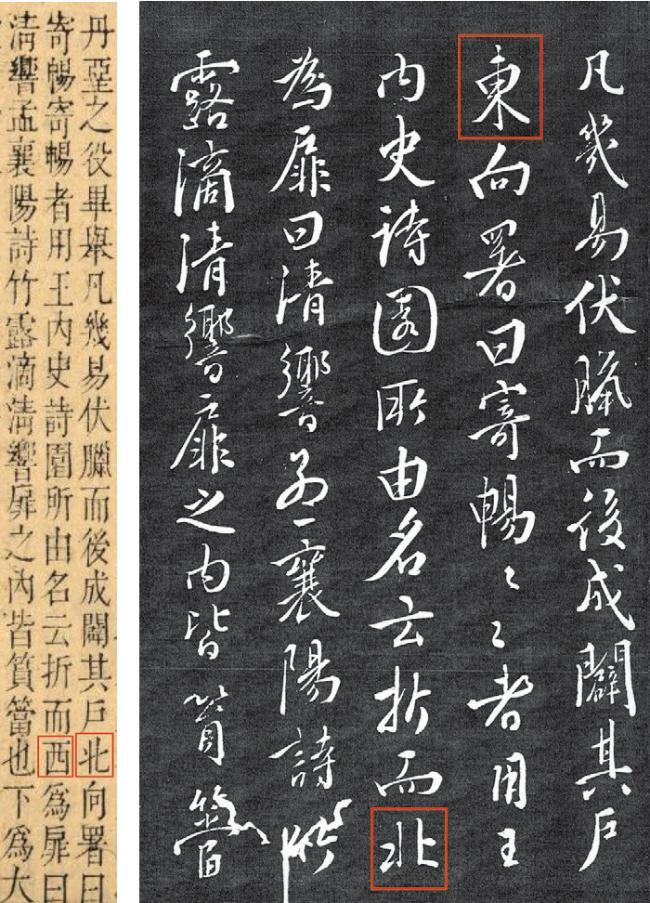 丹堊之役畢舉凡幾易伏臘而後成闢其戶北向署曰
寄暢寄暢者用王內史詩園所由名云折而西爲扉曰
清響孟襄陽詩竹露滴清響扉之內皆篔簹也下爲大
凡幾易伏臘而後成闢其戶
東向署曰寄暢〻〻者用王
內史詩園所由名云折而北
為扉曰清響孟襄陽詩竹
露滴清響扉之內皆篔簹